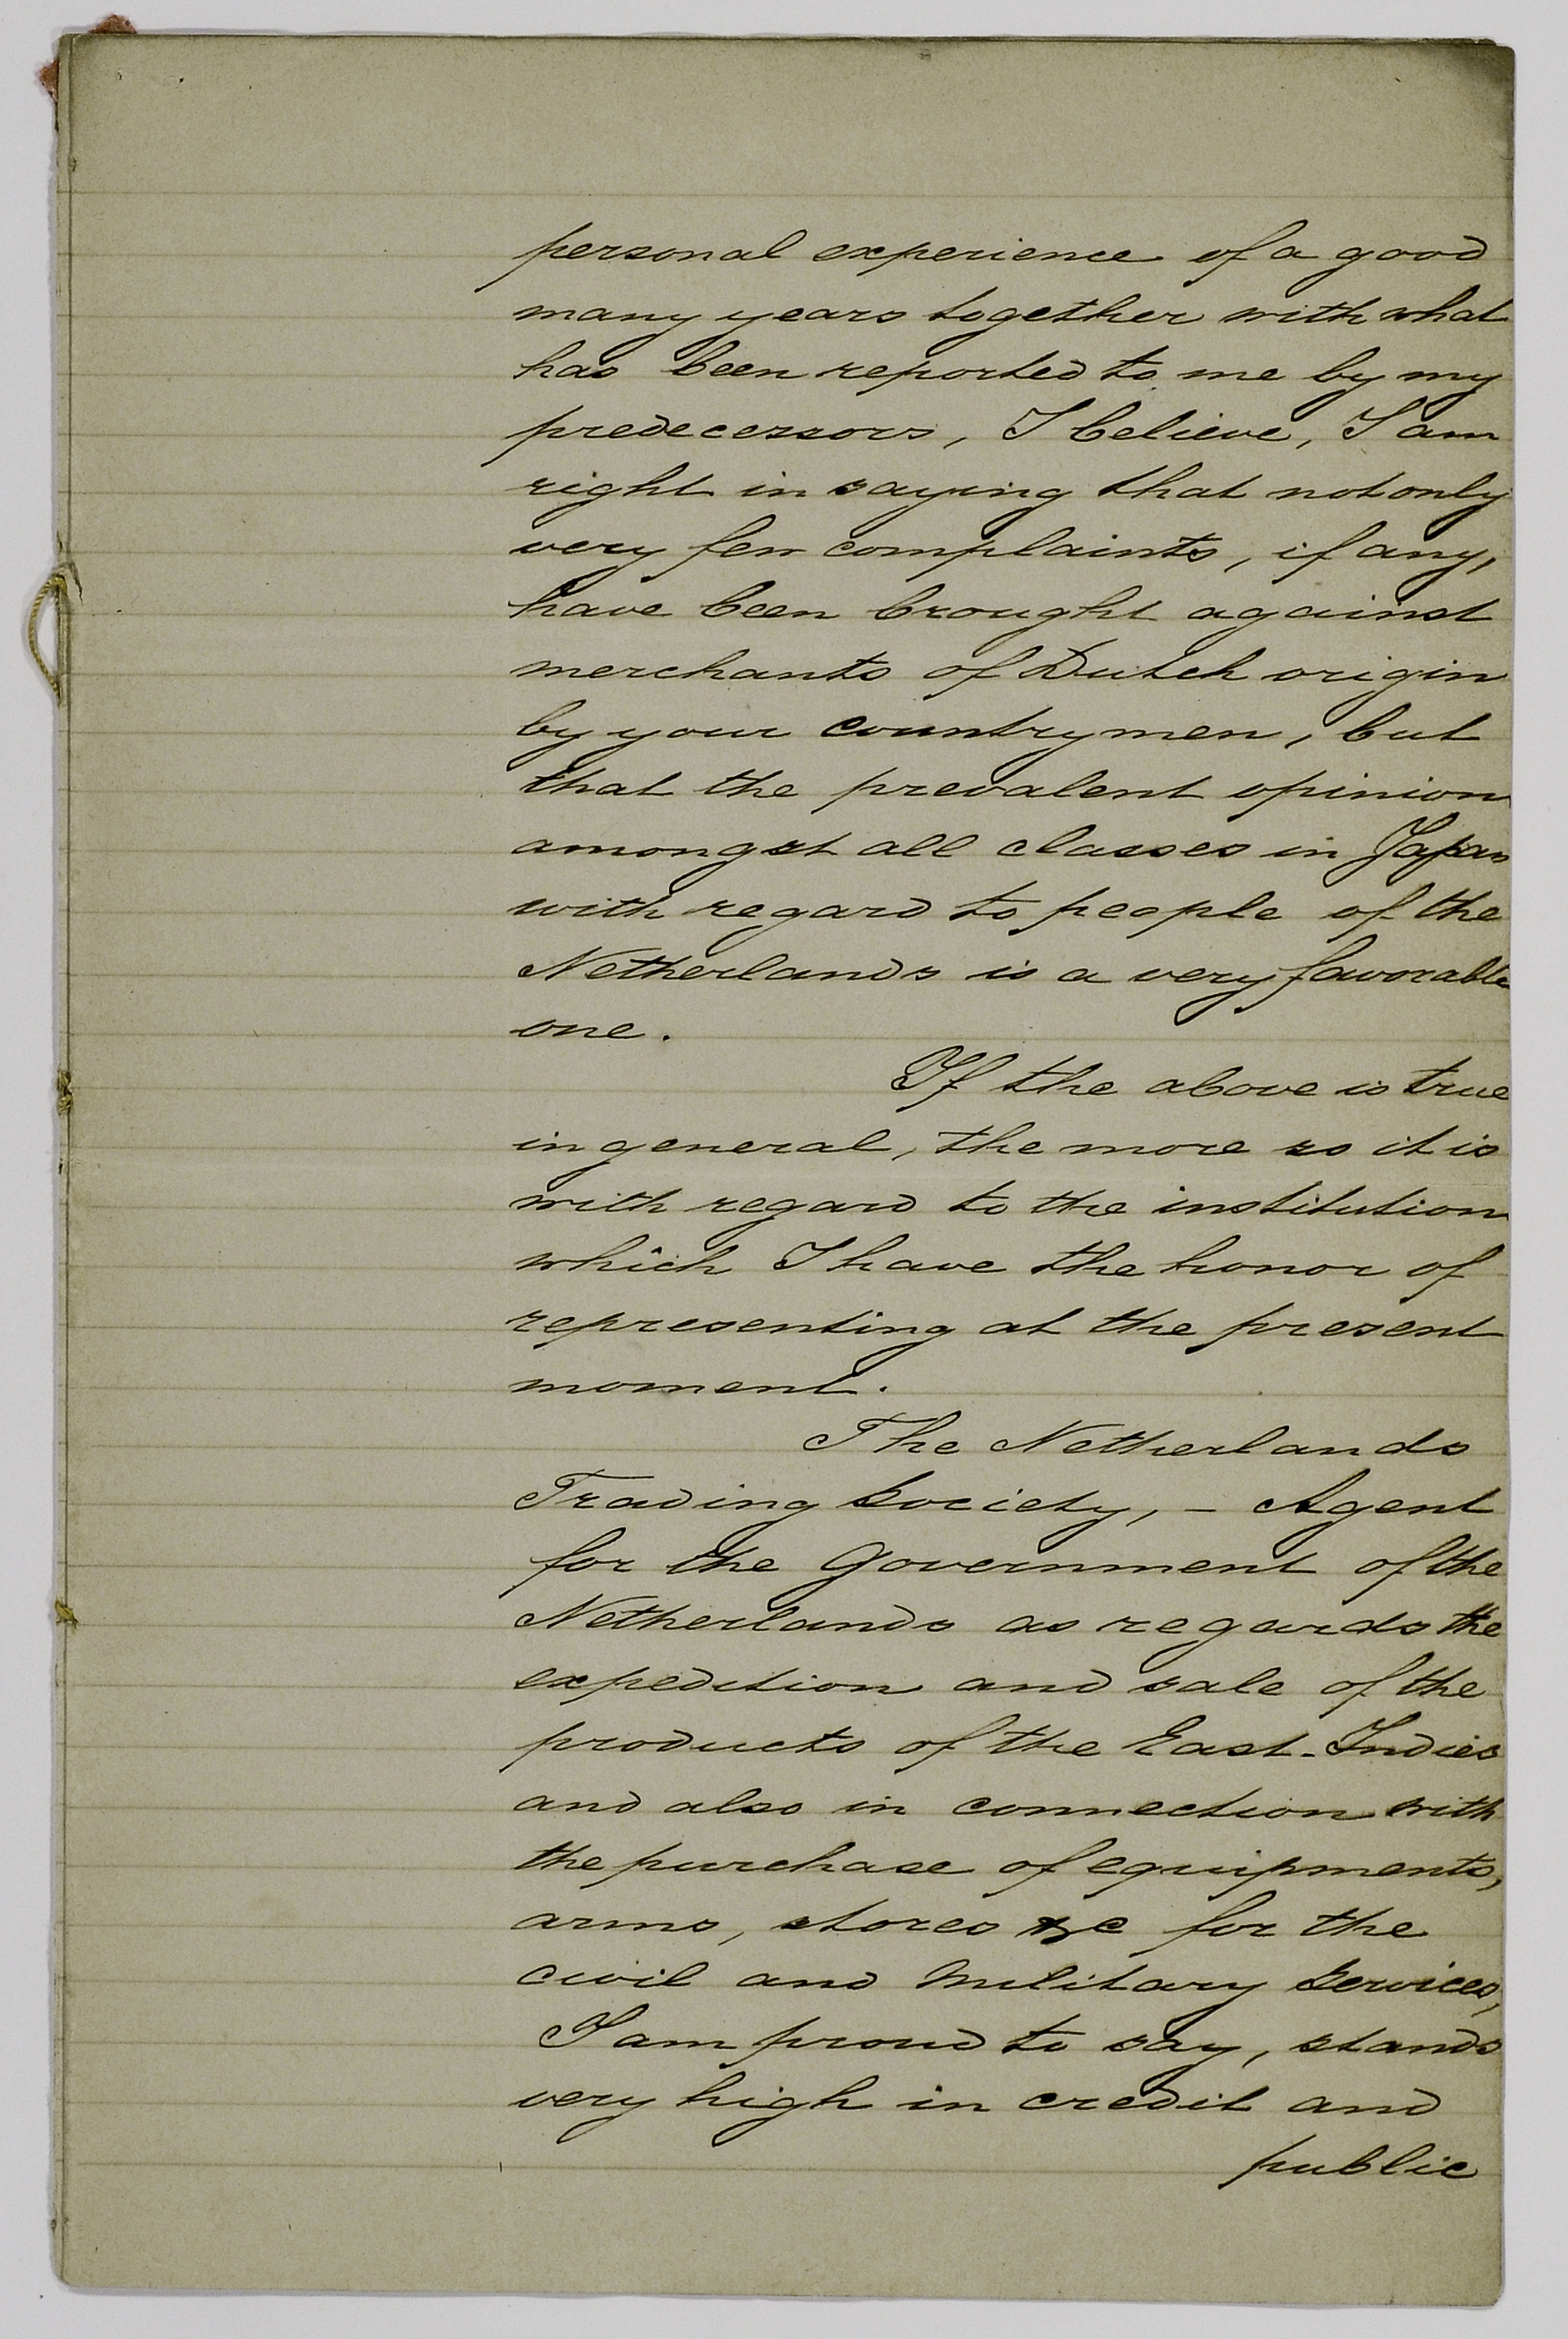 personal experience of a good
many years together with what
has been reported to me by my
predecessors, I believe, I am
right in saying that not only
very few complaints, if any,
have been brought against
merchants of Dutch origin
by your countrymen, but
that the prevalent opinion
amongst all classes in Japan
with regard to people of the
Netherlands is a very favorable
one.
If the above is true
in general, the more so it is
with regard to the institution
which I have the honor of
representing at the present
moment.
The Netherlands
Trading Society, – Agent
for the Government of the
Netherlands as regards the
expedition and sale of the
products of the East-Indies
and also in connection with
the purchase of equipments,
arms, stores &c for the
civil and military services,
I am proud to say, stands
very high in credit and
public